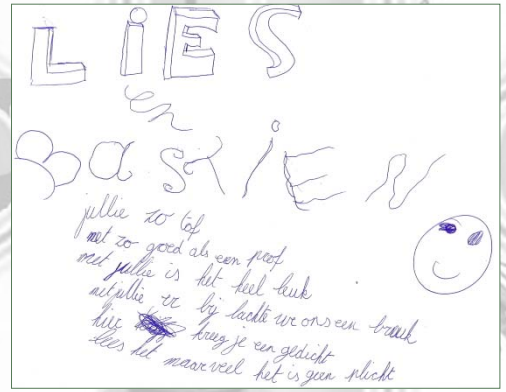 LiES
en
BASTIEN
jullie zo tof
net zo goed als een prof
met jullie is het heel leuk
met jullie er bij lachte we ons een breuk
hier kreeg je een gedicht
lees het maar veel het is geen plicht